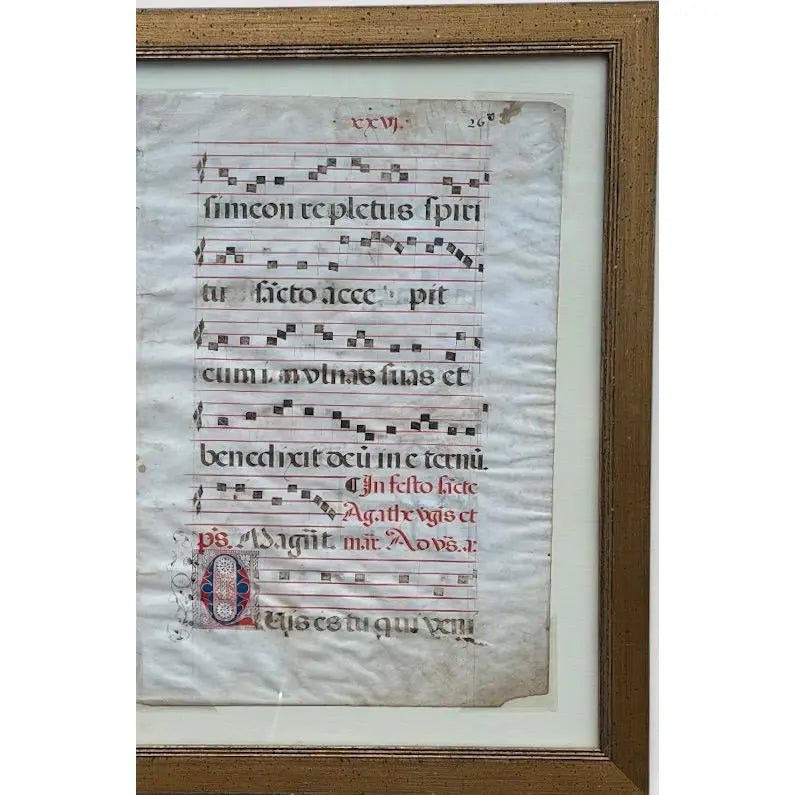 xxvj. 26
simeon repletus spiri
tu sācto acce pit
eum ī vlnas suas et
benedixit deū in eternū.
In festo sācte
Agathe v̄gīs et
ps. Magn̄t. mār̄. Ad vs̄. a:
Quis es tu qui veni